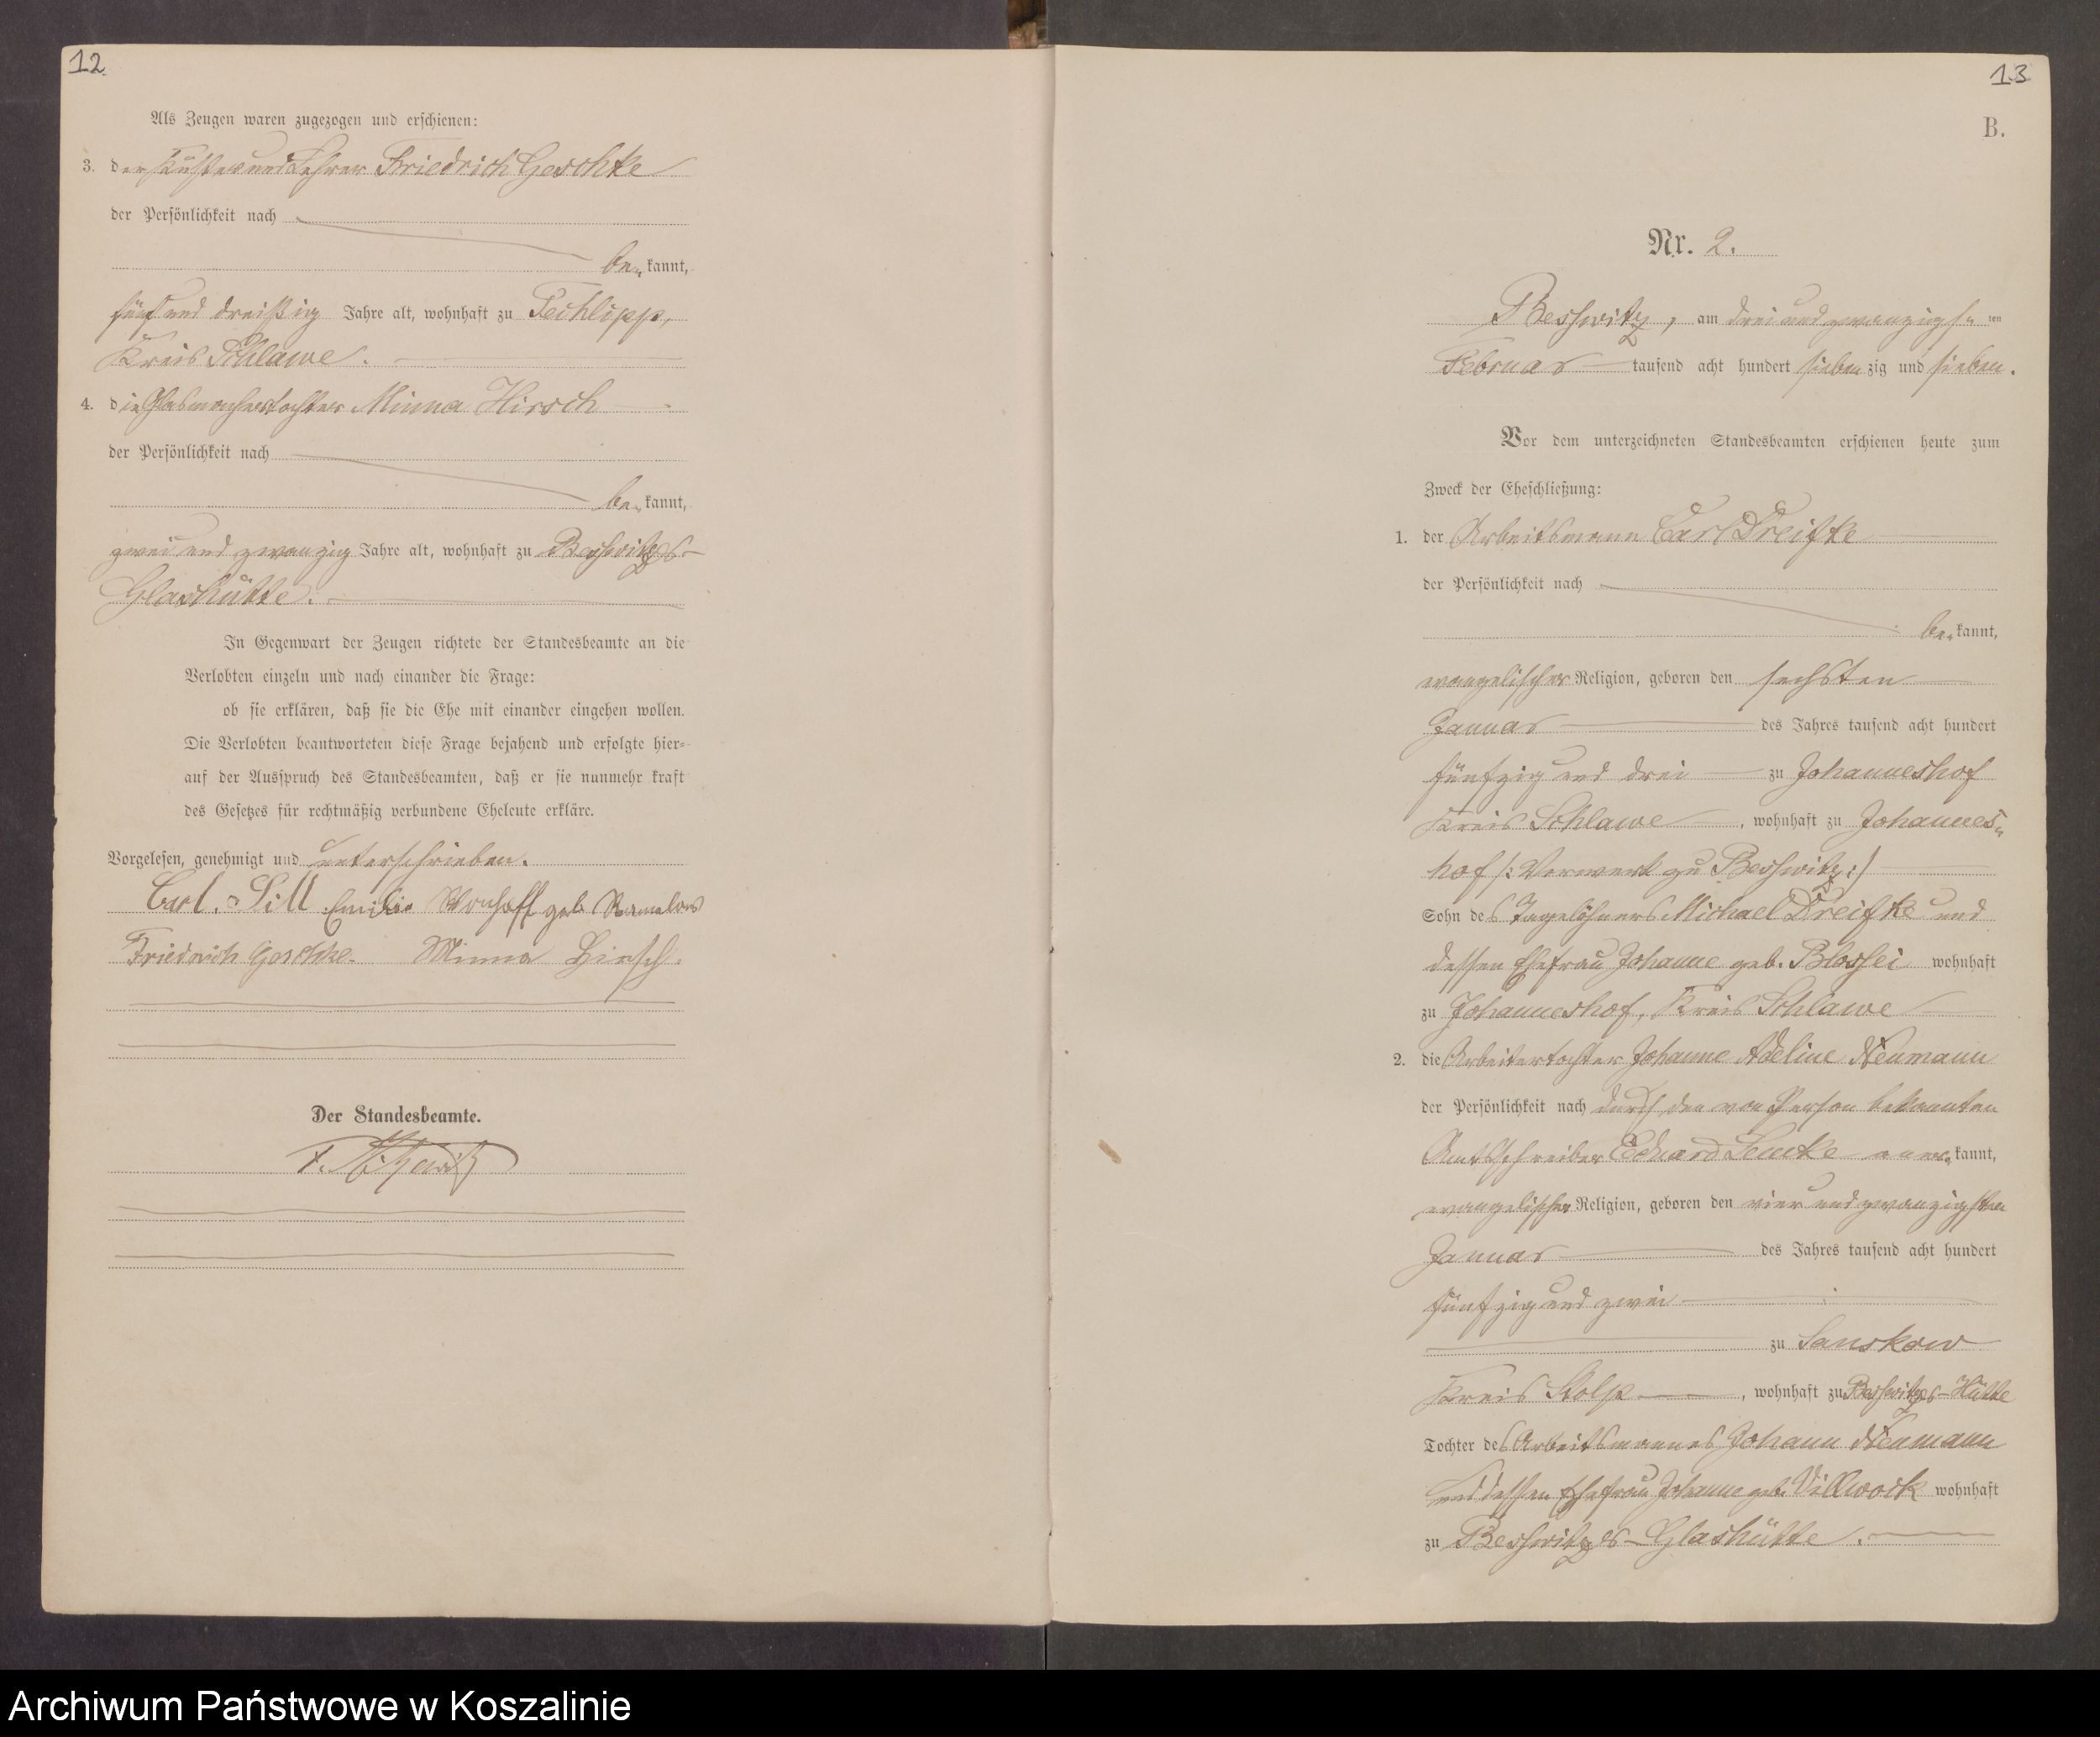 12
Als Zeugen waren zugezogen und erschienen:
3. der Küster und Lehrer Friedrich Geschke
der Persönlichkeit nach
be-kannt,
fünf und dreißig Jahre alt, wohnhaft zu Techlipp,
Kreis Schlawe.
4. die Glasmacherstochter Minna Hirsch
der Persönlichkeit nach
be-kannt,
zwei und zwanzig Jahre alt, wohnhaft zu Besswitzes-
Glashütte.
In Gegenwart der Zeugen richtete der Standesbeamte an die
Verlobten einzeln und nach einander die Frage:
ob sie erklären, daß sie die Ehe mit einander eingehen wollen.
Die Verlobten beantworteten diese Frage bejahend und erfolgte hier-
auf der Ausspruch des Standesbeamten, daß er sie nunmehr kraft
des Gesetzes für rechtmäßig verbundene Eheleute erkläre.
Vorgelesen, genehmigt und unterschrieben.
Carl Sill Emilie geb. Ramelow
Friedrich Geschke. Minna Hirsch.
Der Standesbeamte.
13
B.
Nr. 2.
Besswitz, am drei und zwanzigsten
Februar tausend acht hundert siebenzig und sieben.
Vor dem unterzeichneten Standesbeamten erschienen heute zum
Zweck der Eheschließung:
1. der Arbeitsmann Carl Dreifke
der Persönlichkeit nach
be-kannt,
evangelischer Religion, geboren den sechsten
Januar des Jahres tausend acht hundert
fünfzig und drei zu Johanneshof
Kreis Schlawe, wohnhaft zu Johannes-
hof /: Vorwerk zu Besswitz :/
Sohn des Tagelöhners Michael Dreifke und
dessen Ehefrau Johanne geb. Blossei wohnhaft
zu Johanneshof, Kreis Schlawe
2. die Arbeitertochter Johanne Adeline Neumann
der Persönlichkeit nach durch den von Person bekannten
Amtsschreiber Eduard Lemke aner-kannt,
evangelischer Religion, geboren den vier und zwanzigsten
Januar des Jahres tausend acht hundert
fünfzig und zwei
zu Sanskow
Kreis Stolp, wohnhaft zu Besswitzes-Hütte
Tochter des Arbeitsmannes Johann Neumann
und dessen Ehefrau Johanne geb. Villwock wohnhaft
zu Besswitzes-Glashütte.
Archiwum Państwowe w Koszalinie